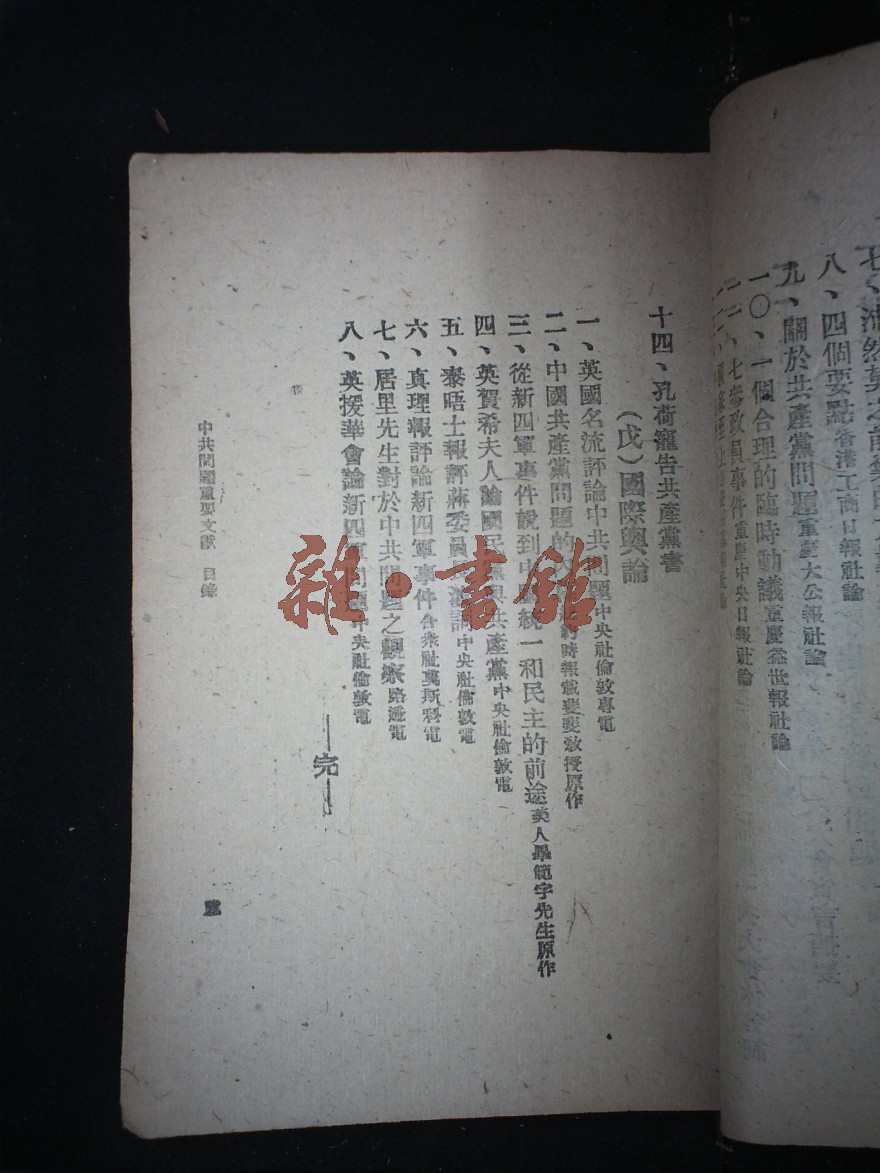 八、四個要點香港工商日報社論
九、關於共產黨問題重慶大公報社論
一〇、一個合理的臨時動議重慶益世報社論
七參政員事件重慶中央日報社論
十四、孔荷寵告共產黨書
（戊）國際輿論
一、英國名流評論中共問題中央社倫敦專電
二、中國共產黨問題的 時報載斐斐教授原作
三、從新四軍事件說到中國統一和民主的前途美人畢範宇先生原作
四、英賀希夫人論國民黨與共產黨中央社倫敦電
五、泰晤士報評蔣委員長演詞中央社倫敦電
六、真理報評論新四軍事件合眾社莫斯科電
七、居里先生對於中共問題之觀察路透電
八、英援華會論新四軍問題中央社倫敦電
完
中共問題重要文獻 目錄
雜·書館